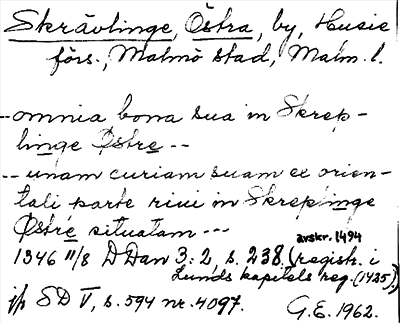 Skrävlinge, Östra, by, Husie
förs., Malmö stad, Malm. l.
--omnia bona sua in Skrep-
linge Østre --
-- unam curiam suam ex orien-
tali parte riui in Skreplinge
Østre situatam ---
avskr. 1494
1346 11/8 DDan 3:2, s. 238. (registr. i
Lunds kapitels reg. (1425),)
jfr SD V, s. 594 nr. 4097.
G.E. 1962.